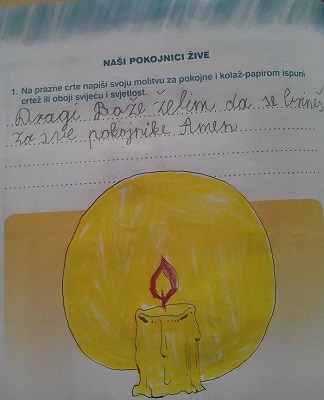 NAŠI POKOJNICI ŽIVE
1. Na prazne crte napiši svoju molitvu za pokojne i kolaž-papirom ispuni
crtež ili oboji svijeću i svjetlost.
Dragi Bože želim da se brineš
za sve pokojnike Amen